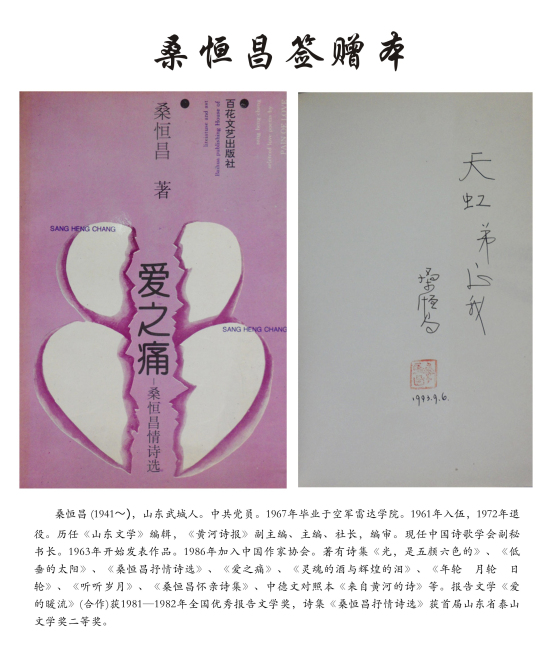 桑恒昌签赠本
桑恒昌 著
百花文艺出版社
literature and art
Baihua publishing House of
SANG HENG CHANG
SANG HENG CHANG
爱之痛
—桑恒昌情诗选
天虹弟正我
桑恒昌
1993.9.6.
桑恒昌 (1941～)，山东武城人。中共党员。1967年毕业于空军雷达学院。1961年入伍，1972年退
役。历任《山东文学》编辑，《黄河诗报》副主编、主编、社长，编审。现任中国诗歌学会副秘
书长。1963年开始发表作品。1986年加入中国作家协会。著有诗集《光，是五颜六色的》、《低
垂的太阳》、《桑恒昌抒情诗选》、《爱之痛》、《灵魂的酒与辉煌的泪》、《年轮 月轮 日
轮》、《听听岁月》、《桑恒昌怀亲诗集》、中德文对照本《来自黄河的诗》等。报告文学《爱
的暖流》(合作)获1981—1982年全国优秀报告文学奖，诗集《桑恒昌抒情诗选》获首届山东省泰山
文学奖二等奖。